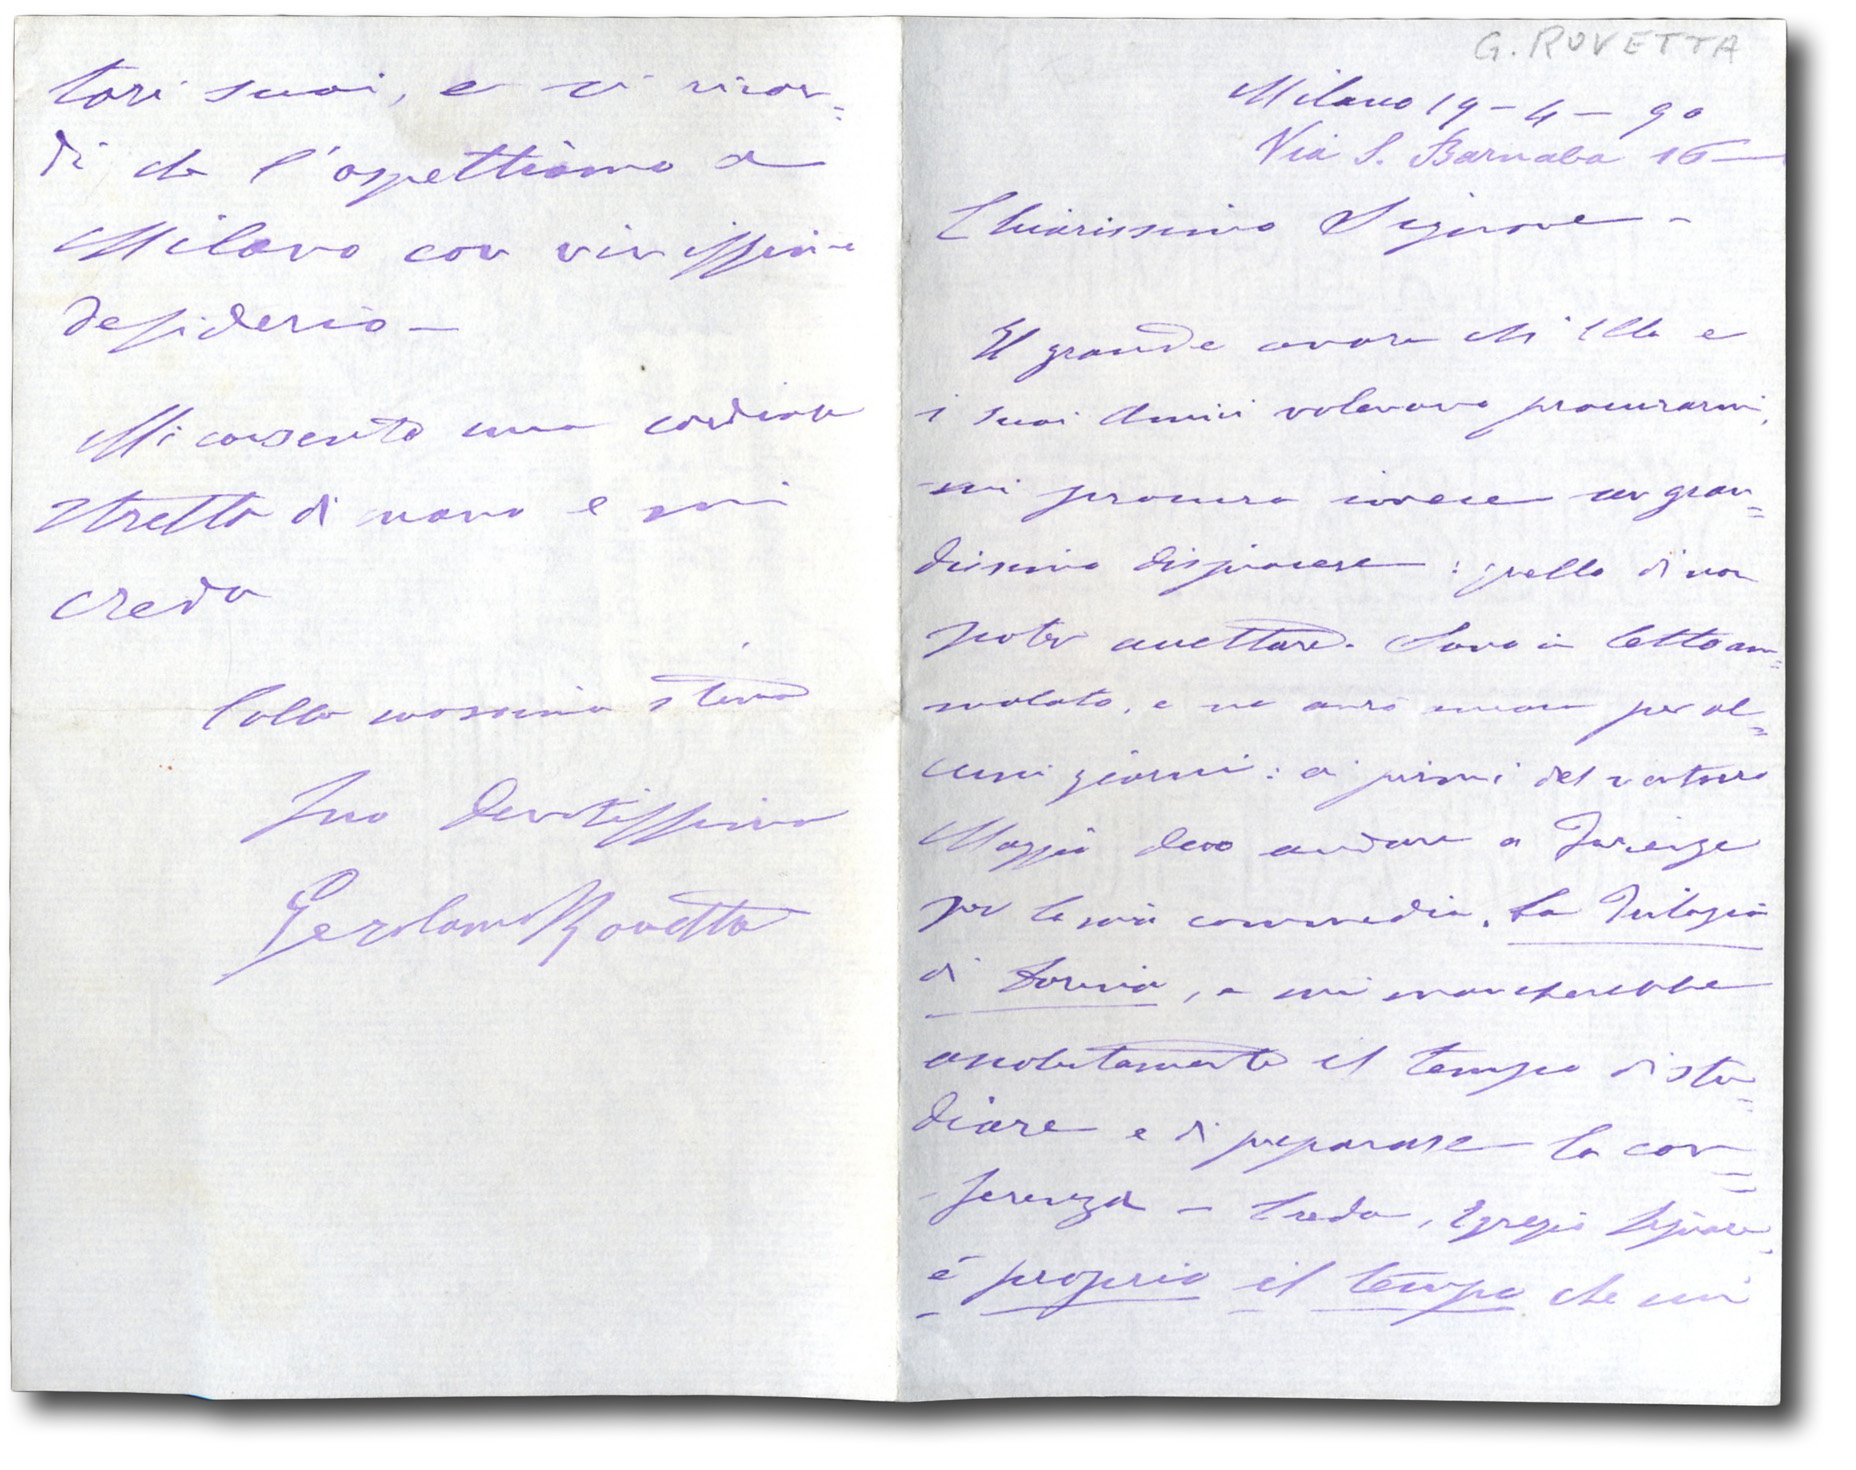 G. ROVETTA
Milano 19-4-90
Via S. Barnaba 16
Chiarissimo Signore -
Il grande onore che Ella e
i suoi amici volevano procurarmi,
mi procura invece un gran=
dissimo dispiacere: quello di non
poter accettare. Sono in letto am=
malato, e ne avrò ancora per al=
cuni giorni: ai primi del venturo
Maggio devo andare a Firenze
per la mia commedia, La Trilogia
di Dorina, e mi mancherebbe
assolutamente il tempo di stu=
diare e di preparare la con=
ferenza - Creda, Egregio Signore,
è proprio il tempo che mi
tori suoi, e si ricor=
di che l'aspettiamo a
Milano con vivissimo
desiderio -
Mi consenta una cordiale
stretta di mano e mi
creda
Colla massima stima
Suo devotissimo
Gerolamo Rovetta